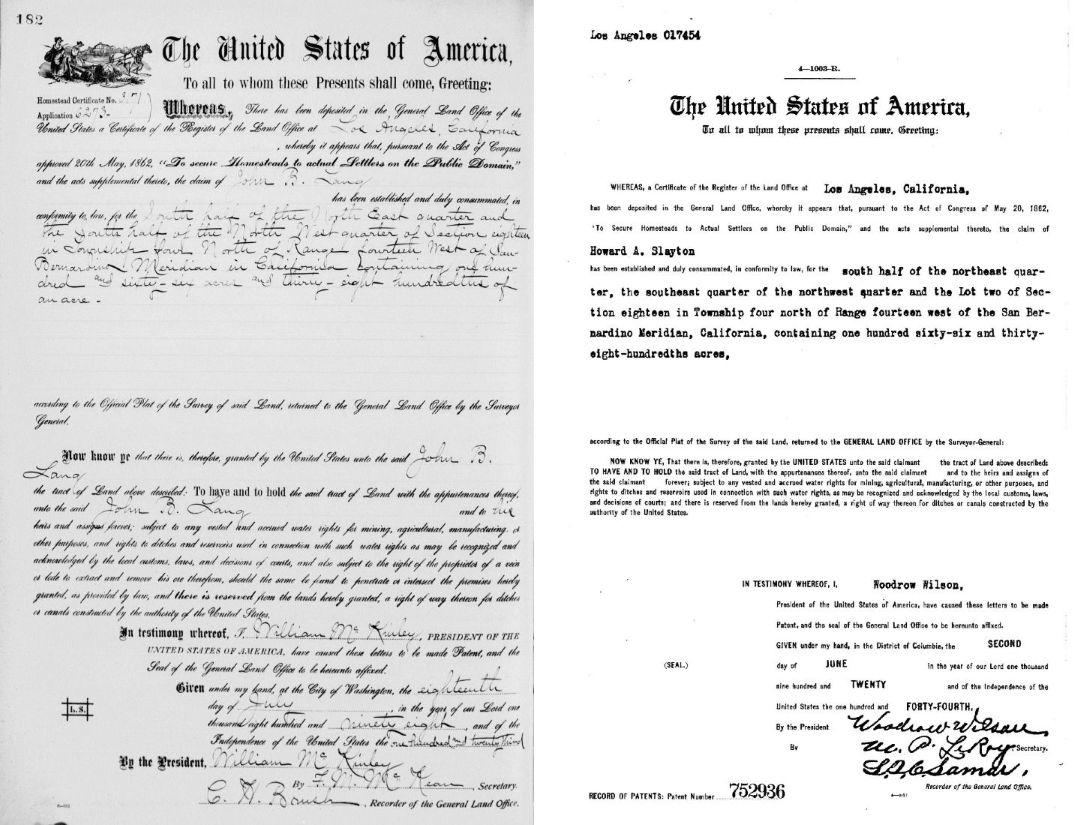 182
The United States of America,
To all to whom these Presents shall come, Greeting:
Homestead Certificate No.
Application 6273
Whereas, There has been deposited in the General Land Office of the
United States a Certificate of the Register of the Land Office at Los Angeles, California
, whereby it appears that, pursuant to the Act of Congress
approved 20th May, 1862, "To secure Homesteads to actual Settlers on the Public Domain,"
and the acts supplemental thereto, the claim of John B. Lang
has been established and duly consummated, in
conformity to law, for the South half of the North East quarter and
the South half of the North West quarter of Section eighteen
in Township four North of Range fourteen West of San
Bernardino Meridian in California containing one hun-
dred and sixty-six acres and thirty-eight hundredths of
an acre -
according to the Official Plat of the Survey of said Land, returned to the General Land Office by the Surveyor
General.
Now know ye that there is, therefore, granted by the United States unto the said John B.
Lang
the tract of Land above described: To have and to hold the said tract of Land with the appurtenances thereof,
unto the said John B. Lang and to his
heirs and assigns forever; subject to any vested and accrued water rights for mining, agricultural, manufacturing, or
other purposes, and rights to ditches and reservoirs used in connection with such water rights as may be recognized and
acknowledged by the local customs, laws, and decisions of courts, and also subject to the right of the proprietor of a vein
or lode to extract and remove his ore therefrom, should the same be found to penetrate or intersect the premises hereby
granted, as provided by law, and there is reserved from the lands hereby granted, a right of way thereon for ditches
or canals constructed by the authority of the United States.
In testimony whereof, I, William McKinley, PRESIDENT OF THE
UNITED STATES OF AMERICA, have caused these letters to be made Patent, and the
Seal of the General Land Office to be hereunto affixed.
Given under my hand, at the City of Washington, the eighteenth
day of July, in the year of our Lord one
thousand eight hundred and ninety eight, and of the
Independence of the United States the one hundred and twenty third
L.S.
By the President, William McKinley
By F. M. McKean, Secretary.
C. H. Brush, Recorder of the General Land Office.
Los Angeles 017454
4—1003-R.
The United States of America,
To all to whom these presents shall come, Greeting:
WHEREAS, a Certificate of the Register of the Land Office at Los Angeles, California,
has been deposited in the General Land Office, whereby it appears that, pursuant to the Act of Congress of May 20, 1862,
"To Secure Homesteads to Actual Settlers on the Public Domain," and the acts supplemental thereto, the claim of
Howard A. Slayton
has been established and duly consummated, in conformity to law, for the south half of the northeast quar-
ter, the southeast quarter of the northwest quarter and the Lot two of Sec-
tion eighteen in Township four north of Range fourteen west of the San Ber-
nardino Meridian, California, containing one hundred sixty-six and thirty-
eight-hundredths acres,
according to the Official Plat of the Survey of the said Land, returned to the GENERAL LAND OFFICE by the Surveyor-General:
NOW KNOW YE, That there is, therefore, granted by the UNITED STATES unto the said claimant the tract of Land above described;
TO HAVE AND TO HOLD the said tract of Land, with the appurtenances thereof, unto the said claimant and to the heirs and assigns of
the said claimant forever; subject to any vested and accrued water rights for mining, agricultural, manufacturing, or other purposes, and
rights to ditches and reservoirs used in connection with such water rights, as may be recognized and acknowledged by the local customs, laws,
and decisions of courts; and there is reserved from the lands hereby granted, a right of way thereon for ditches or canals constructed by the
authority of the United States.
IN TESTIMONY WHEREOF, I, Woodrow Wilson,
President of the United States of America, have caused these letters to be made
Patent, and the seal of the General Land Office to be hereunto affixed.
GIVEN under my hand, in the District of Columbia, the SECOND
(SEAL.)
day of JUNE in the year of our Lord one thousand
nine hundred and TWENTY and of the Independence of the
United States the one hundred and FORTY-FOURTH.
By the President Woodrow Wilson
By M. P. LeRoy Secretary.
L. Q. C. Lamar.
Recorder of the General Land Office.
RECORD OF PATENTS: Patent Number 752936